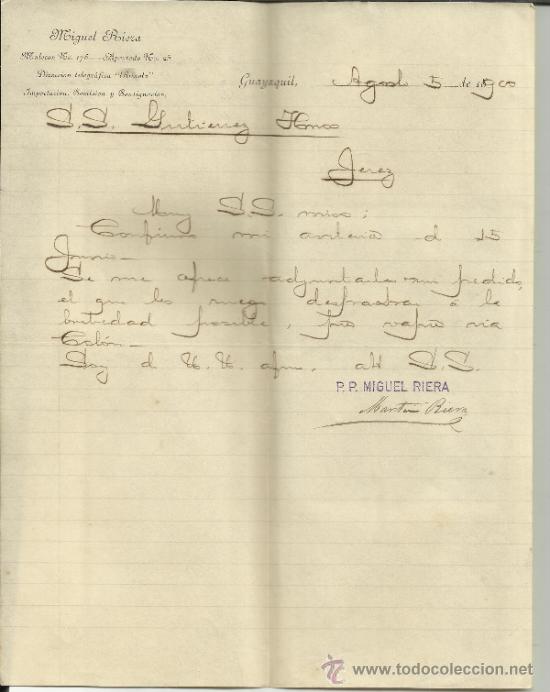 Miguel Riera
Malecon No. 176 - Apartado No. 25
Direccion telegráfica
Importacion, Comision y Consignacion.
Guayaquil, Agosto 5 de 1900
S.S. Gutierrez Hnos
Jerez
Muy S.S. mios:
Confirmo mi anterior d 15
Junio—
Se me ofrece adjuntarles un pedido,
el que les ruego despachar á la
brevedad posible, por vapor via
Colón—
Soy d U. U. afmo. att S.S.
P.P. MIGUEL RIERA
Martin Riera
todocoleccion
www.todocoleccion.net